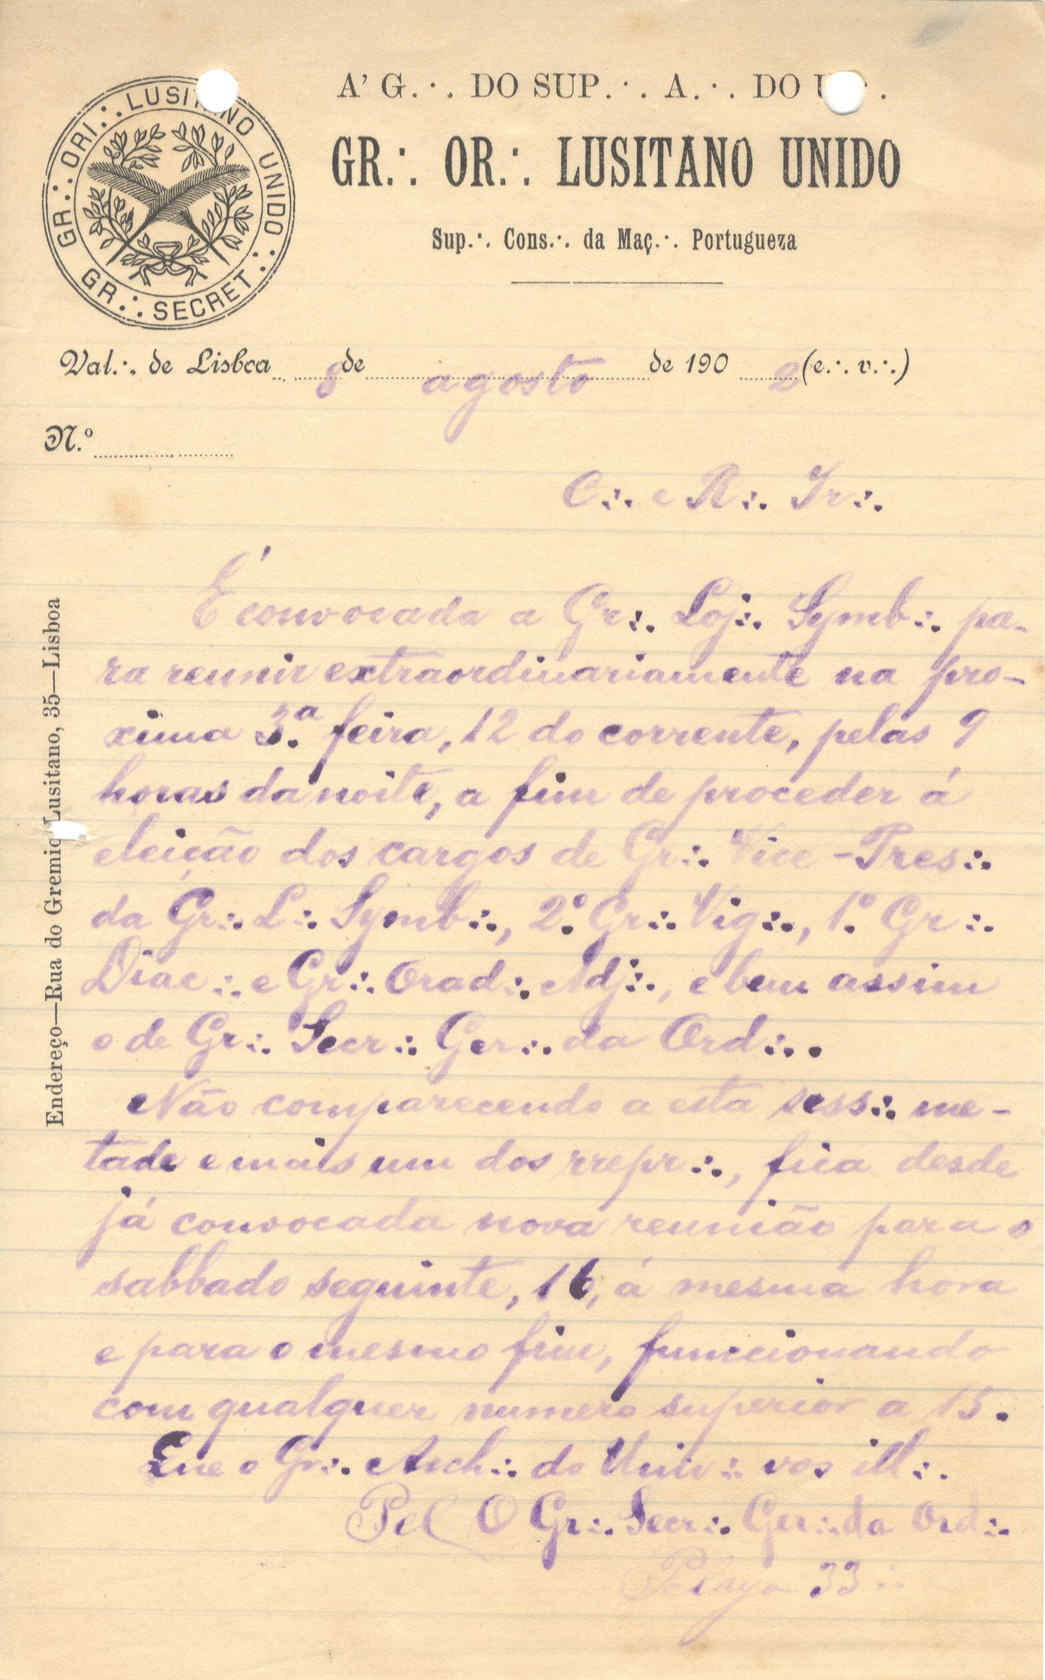 GR∴ ORI∴ LUSITANO UNIDO
GR∴ SECRET∴
A' G∴ DO SUP∴ A∴ DO U∴
GR∴ OR∴ LUSITANO UNIDO
Sup∴ Cons∴ da Maç∴ Portugueza
Val∴ de Lisboa 8 de agosto de 1902 (e∴ v∴)
N.º
C∴ e R∴ Ir∴
É convocada a Gr∴ Loj∴ Symb∴ pa-
ra reunir extraordinariamente na pro-
xima 3.ª feira, 12 do corrente, pelas 9
horas da noite, a fim de proceder á
eleição dos cargos de Gr∴ Vice-Pres∴
da Gr∴ L∴ Symb∴, 2.º Gr∴ Vig∴, 1.º Gr∴
Diac∴ e Gr∴ Orad∴ Adj∴, e bem assim
o de Gr∴ Secr∴ Ger∴ da Ord∴.
Não comparecendo a esta sess∴ me-
tade e mais um dos rrepr∴, fica desde
já convocada nova reunião para o
sabbado seguinte, 16, á mesma hora
e para o mesmo fim, funccionando
com qualquer numero superior a 15.
Que o Gr∴ Arch∴ do Univ∴ vos ill∴.
Pel O Gr∴ Secr∴ Ger∴ da Ord∴
33∴
Endereço—Rua do Gremio Lusitano, 35—Lisboa